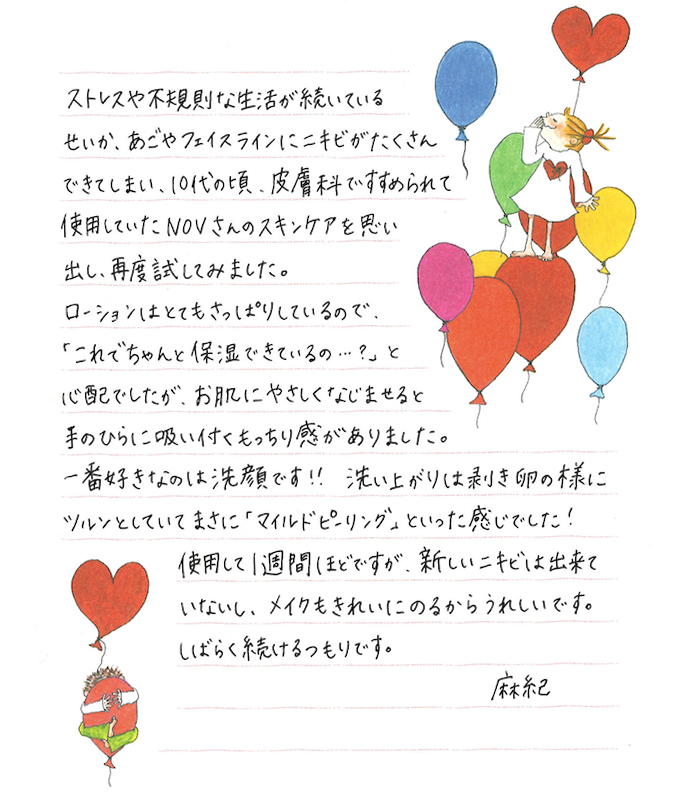 ストレスや不規則な生活が続いている
せいか、あごやフェイスラインにニキビがたくさん
できてしまい、10代の頃、皮膚科ですすめられて
使用していたNOVさんのスキンケアを思い
出し、再度試してみました。
ローションはとてもさっぱりしているので、
「これでちゃんと保湿できているの…?」と
心配でしたが、お肌にやさしくなじませると
手のひらに吸い付くもっちり感がありました。
一番好きなのは洗顔です!! 洗い上がりは剥き卵の様に
ツルンとしていてまさに「マイルドピーリング」といった感じでした!
使用して1週間ほどですが、新しいニキビは出来て
いないし、メイクもきれいにのるからうれしいです。
しばらく続けるつもりです。
麻紀